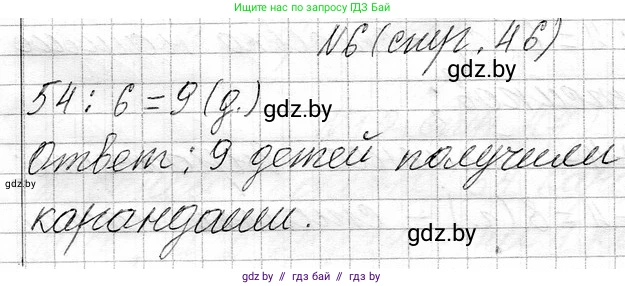 Ищите нас по запросу ГДЗ Бай
№6 (стр. 46)
gdz.by
54 : 6 = 9 (д.)
gdz.by
Ответ: 9 детей получили
gdz.by
карандаши.
gdz.by
gdz.by // гдз бай // gdz.by